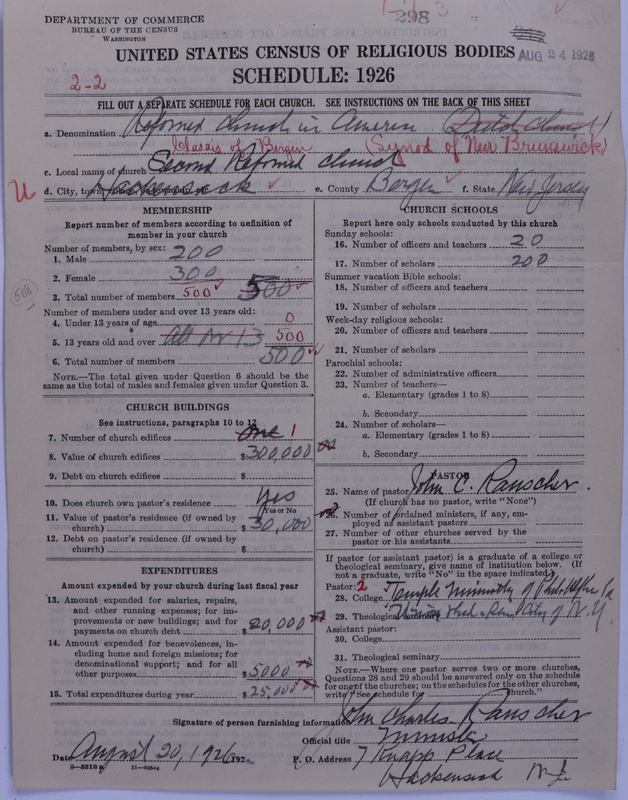 DEPARTMENT OF COMMERCE
BUREAU OF THE CENSUS
WASHINGTON
298
AUG 24 1928
UNITED STATES CENSUS OF RELIGIOUS BODIES
SCHEDULE: 1926
2-2
FILL OUT A SEPARATE SCHEDULE FOR EACH CHURCH. SEE INSTRUCTIONS ON THE BACK OF THIS SHEET
a. Denomination Reformed Church in America (Dutch Church)
Classis of Bergen (Synod of New Brunswick)
c. Local name of church Second Reformed Church
d. City, town, Hackensack e. County Bergen f. State New Jersey
U
508
MEMBERSHIP
Report number of members according to definition of
member in your church
Number of members, by sex:
1. Male 200
2. Female 300
3. Total number of members 500 500
Number of members under and over 13 years old:
4. Under 13 years of age 0
5. 13 years old and over all over 13 500
6. Total number of members 500
NOTE.—The total given under Question 6 should be the
same as the total of males and females given under Question 3.
CHURCH BUILDINGS
See instructions, paragraphs 10 to 12
7. Number of church edifices one 1
8. Value of church edifices $300,000
9. Debt on church edifices $
10. Does church own pastor's residence yes
Yes or No
11. Value of pastor's residence (if owned by
church) $30,000
12. Debt on pastor's residence (if owned by
church) $
EXPENDITURES
Amount expended by your church during last fiscal year
13. Amount expended for salaries, repairs,
and other running expenses; for im-
provements or new buildings; and for
payments on church debt $20,000
14. Amount expended for benevolences, in-
cluding home and foreign missions; for
denominational support; and for all
other purposes $5000
15. Total expenditures during year $25,000
CHURCH SCHOOLS
Report here only schools conducted by this church
Sunday schools:
16. Number of officers and teachers 20
17. Number of scholars 200
Summer vacation Bible schools:
18. Number of officers and teachers
19. Number of scholars
Week-day religious schools:
20. Number of officers and teachers
21. Number of scholars
Parochial schools:
22. Number of administrative officers
23. Number of teachers—
a. Elementary (grades 1 to 8)
b. Secondary
24. Number of scholars—
a. Elementary (grades 1 to 8)
b. Secondary
PASTOR
25. Name of pastor John C. Rauscher.
(If church has no pastor, write "None")
26. Number of ordained ministers, if any, em-
ployed as assistant pastors
27. Number of other churches served by the
pastor or his assistants
If pastor (or assistant pastor) is a graduate of a college or
theological seminary, give name of institution below. (If
not a graduate, write "No" in the space indicated)
Pastor: 2
28. College Temple University of Philadelphia Pa
29. Theological seminary Union Theo. Sem. City of N.Y.
Assistant pastor:
30. College
31. Theological seminary
NOTE.—Where one pastor serves two or more churches,
Questions 28 and 29 should be answered only on the schedule
for one of the churches; on the schedules for the other churches,
write "See schedule for church."
Signature of person furnishing information John Charles Rauscher
Official title Minister
Date August 20, 1926 192 P. O. Address 7 Knapp Place
Hackensack N.J.
8—5518a 11—9554a